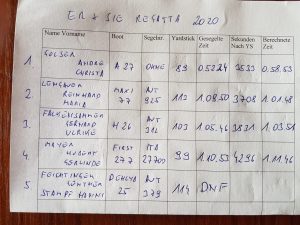 ER + SIE REGATTA 2020
Name Vorname Boot Segelnr. Yardstick Gesegelte Zeit Sekunden Nach YS Berechnete Zeit
1 GOLSER ANDRE CHRISTA A 27 OHNE 89 0.52.24 3533 0.58.53
2 REINHARD MARIA MAXI 77 AUT 925 112 1.09.50 3708 1.01.48
3 FALKENSAMMER GERHARD ULRIKE H 26 AUT 312 103 1.05.46 3831 1.03.51
4 MAYER HUBERT GERLINDE FIRST 27.7 ITA 27700 99 1.10.53 4296 1.11.46
5 FEICHTINGER GÜNTHER STAMPF HANNI DEHLYA 25 AUT 379 114 DNF